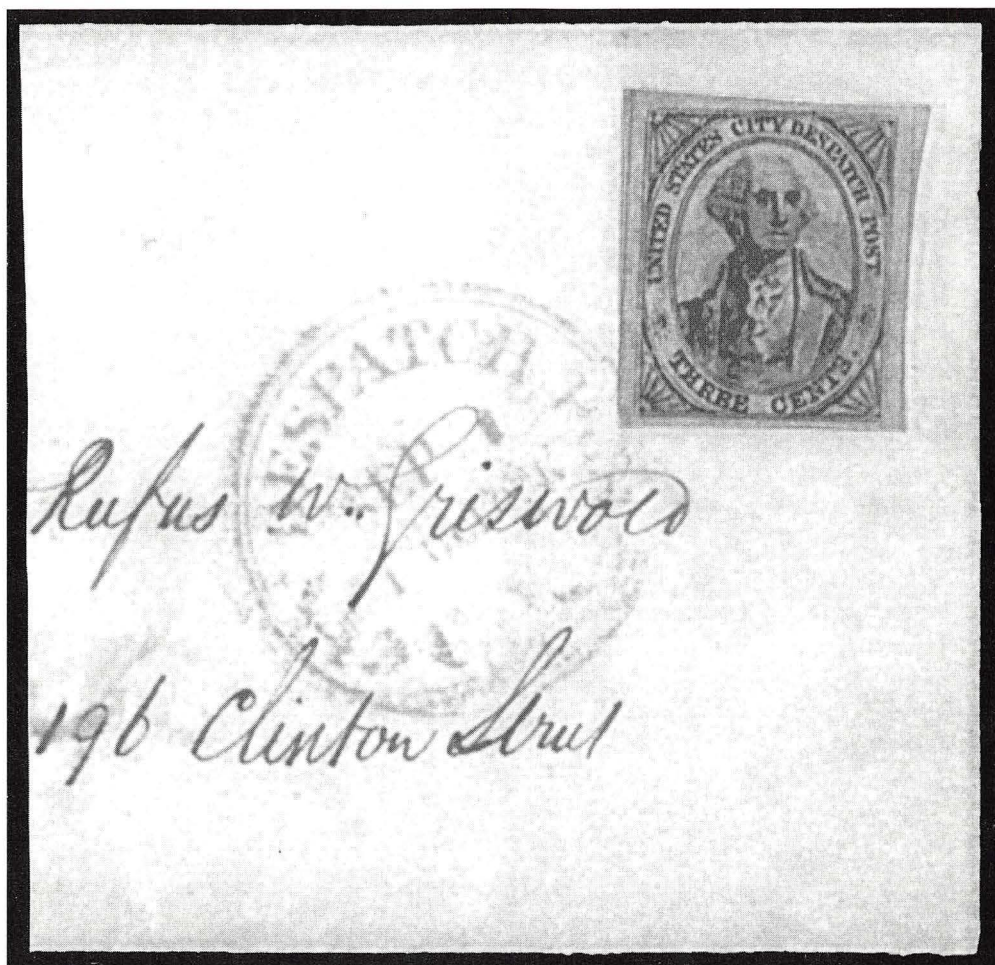 UNITED STATES CITY DESPATCH POST
THREE CENTS.
DESPATCH
Rufus W. Griswold
196 Clinton Street